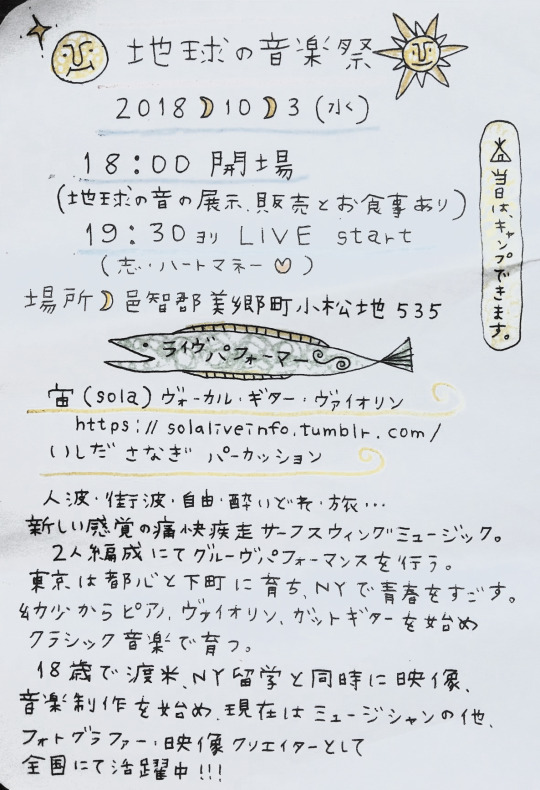 地球の音楽祭
2018 10 3 (水)
18:00 開場
(地球の音の展示、販売とお食事あり)
19:30ヨリ LIVE start
(志・ハートマネー)
場所 邑智郡美郷町小松地 535
当日は、キャンプできます。
ライヴパフォーマー
宙 (sola) ヴォーカル・ギター・ヴァイオリン
https://solaliveinfo.tumblr.com/
いしだ さなぎ パーカッション
人波・街波・自由・酔いどれ・旅…
新しい感覚の痛快疾走サーフスウィングミュージック。
2人編成にてグルーヴパフォーマンスを行う。
東京は都心と下町に育ち、NYで青春をすごす。
幼少からピアノ、ヴァイオリン、ガットギターを始め
クラシック音楽で育つ。
18歳で渡米、NY留学と同時に映像、
音楽制作を始め、現在はミュージシャンの他、
フォトグラファー・映像クリエイターとして
全国にて活躍中!!!